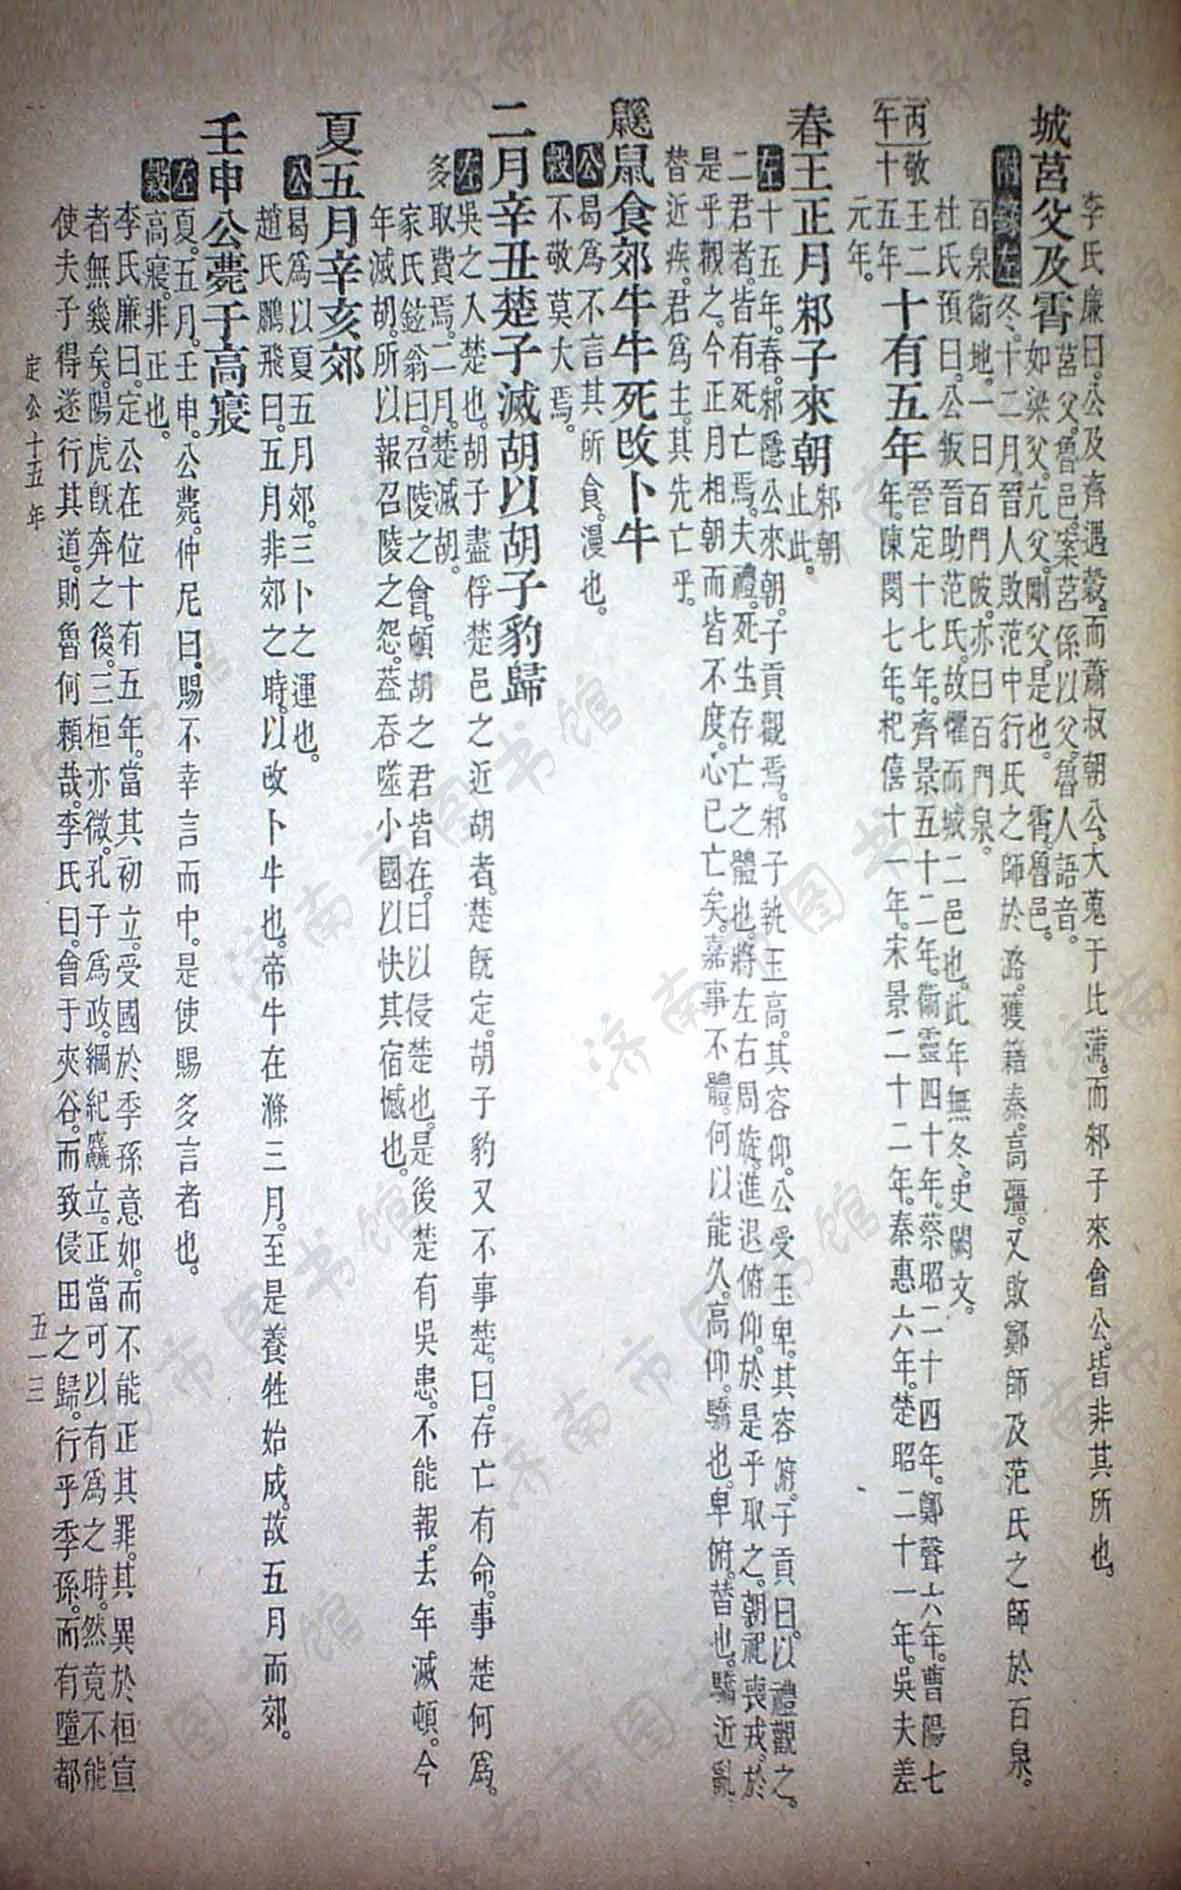 李氏廉曰。公及齊遇穀。而蕭叔朝公。大蒐于比蒲。而邾子來會公。皆非其所也。
城莒父及霄 莒父。魯邑。案莒係以父。魯人語音。
如梁父。亢父。剛父。是也。 霄。魯邑。
附錄左 冬、十二月。晉人敗范中行氏之師於潞。獲籍秦。高彊。又敗鄭師及范氏之師於百泉。
百泉衞地。一曰百門陂。亦曰百門泉。
杜氏預曰。公叛晉助范氏。故懼而城二邑也。此年無冬、史闕文。
丙午 敬王二十五年 十有五年 晉定十七年。齊景五十二年。衞靈四十年。蔡昭二十四年。鄭聲六年。曹陽七
年。陳閔七年。杞僖十一年。宋景二十二年。秦惠六年。楚昭二十一年。吳夫差
元年。
春王正月邾子來朝 邾朝
止此。
左 十五年。春。邾隱公來朝。子貢觀焉。邾子執玉高。其容仰。公受玉卑。其容俯。子貢曰。以禮觀之。
二君者。皆有死亡焉。夫禮。死生存亡之體也。將左右周旋。進退俯仰。於是乎取之。朝祀喪戎。於
是乎觀之。今正月相朝而皆不度。心已亡矣。嘉事不體。何以能久。高仰。驕也。卑俯。替也。驕近亂
替近疾。君爲主。其先亡乎。
鼷鼠食郊牛牛死改卜牛
公 曷爲不言其所食。漫也。
穀 不敬莫大焉。
二月辛丑楚子滅胡以胡子豹歸
左 吳之入楚也。胡子盡俘楚邑之近胡者。楚既定。胡子豹又不事楚。曰。存亡有命。事楚何爲。
多取費焉。二月。楚滅胡。
家氏鉉翁曰。召陵之會。頓胡之君皆在。曰以侵楚也。是後楚有吳患。不能報。去年滅頓。今
年滅胡。所以報召陵之怨。葢吞噬小國以快其宿憾也。
夏五月辛亥郊
公 曷爲以夏五月郊。三卜之運也。
趙氏鵬飛曰。五月非郊之時。以改卜牛也。帝牛在滌三月。至是養牲始成。故五月而郊。
壬申公薨于高寢
左 夏。五月。壬申。公薨。仲尼曰。賜不幸言而中。是使賜多言者也。
穀 高寢。非正也。
李氏廉曰。定公在位十有五年。當其初立。受國於季孫意如。而不能正其罪。其異於桓宣
者無幾矣。陽虎既奔之後。三桓亦微。孔子爲政。綱紀麤立。正當可以有爲之時。然竟不能
使夫子得遂行其道。則魯何賴哉。李氏曰。會于夾谷。而致侵田之歸。行乎季孫。而有墮都
定公十五年
五一三